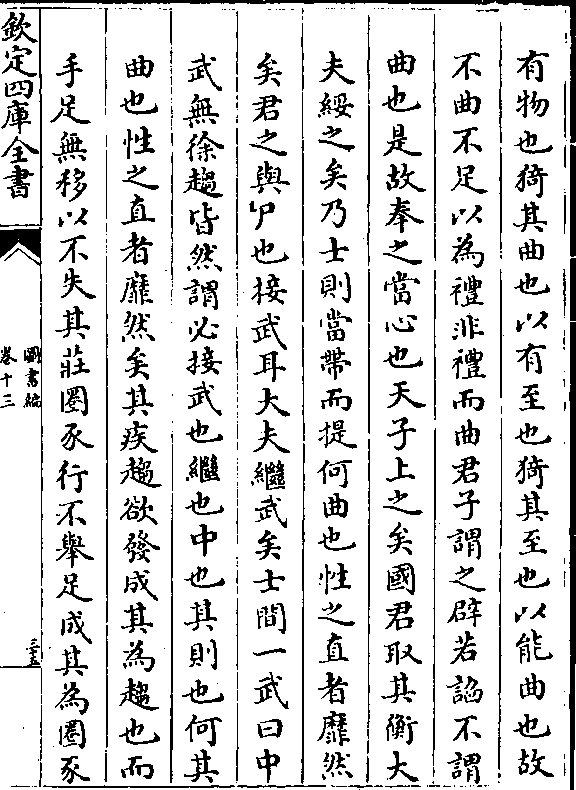 有物也猗其曲也以有至也猗其至也以能曲也故
不曲不足以為禮非禮而曲君子謂之辟若謟不謂
曲也是故奉之當心也天子上之矣國君取其衡大
夫綏之矣乃士則當帶而提何曲也性之直者靡然
矣君之與尸也接武耳大夫繼武矣士間一武曰中
武無徐趨皆然謂必接武也繼也中也其則也何其
曲也性之直者靡然矣其疾趨欲發成其為趨也而
手足無移以不失其莊圈豕行不舉足成其為圈豕
欽定四庫全書
圖書編
卷十三
三五